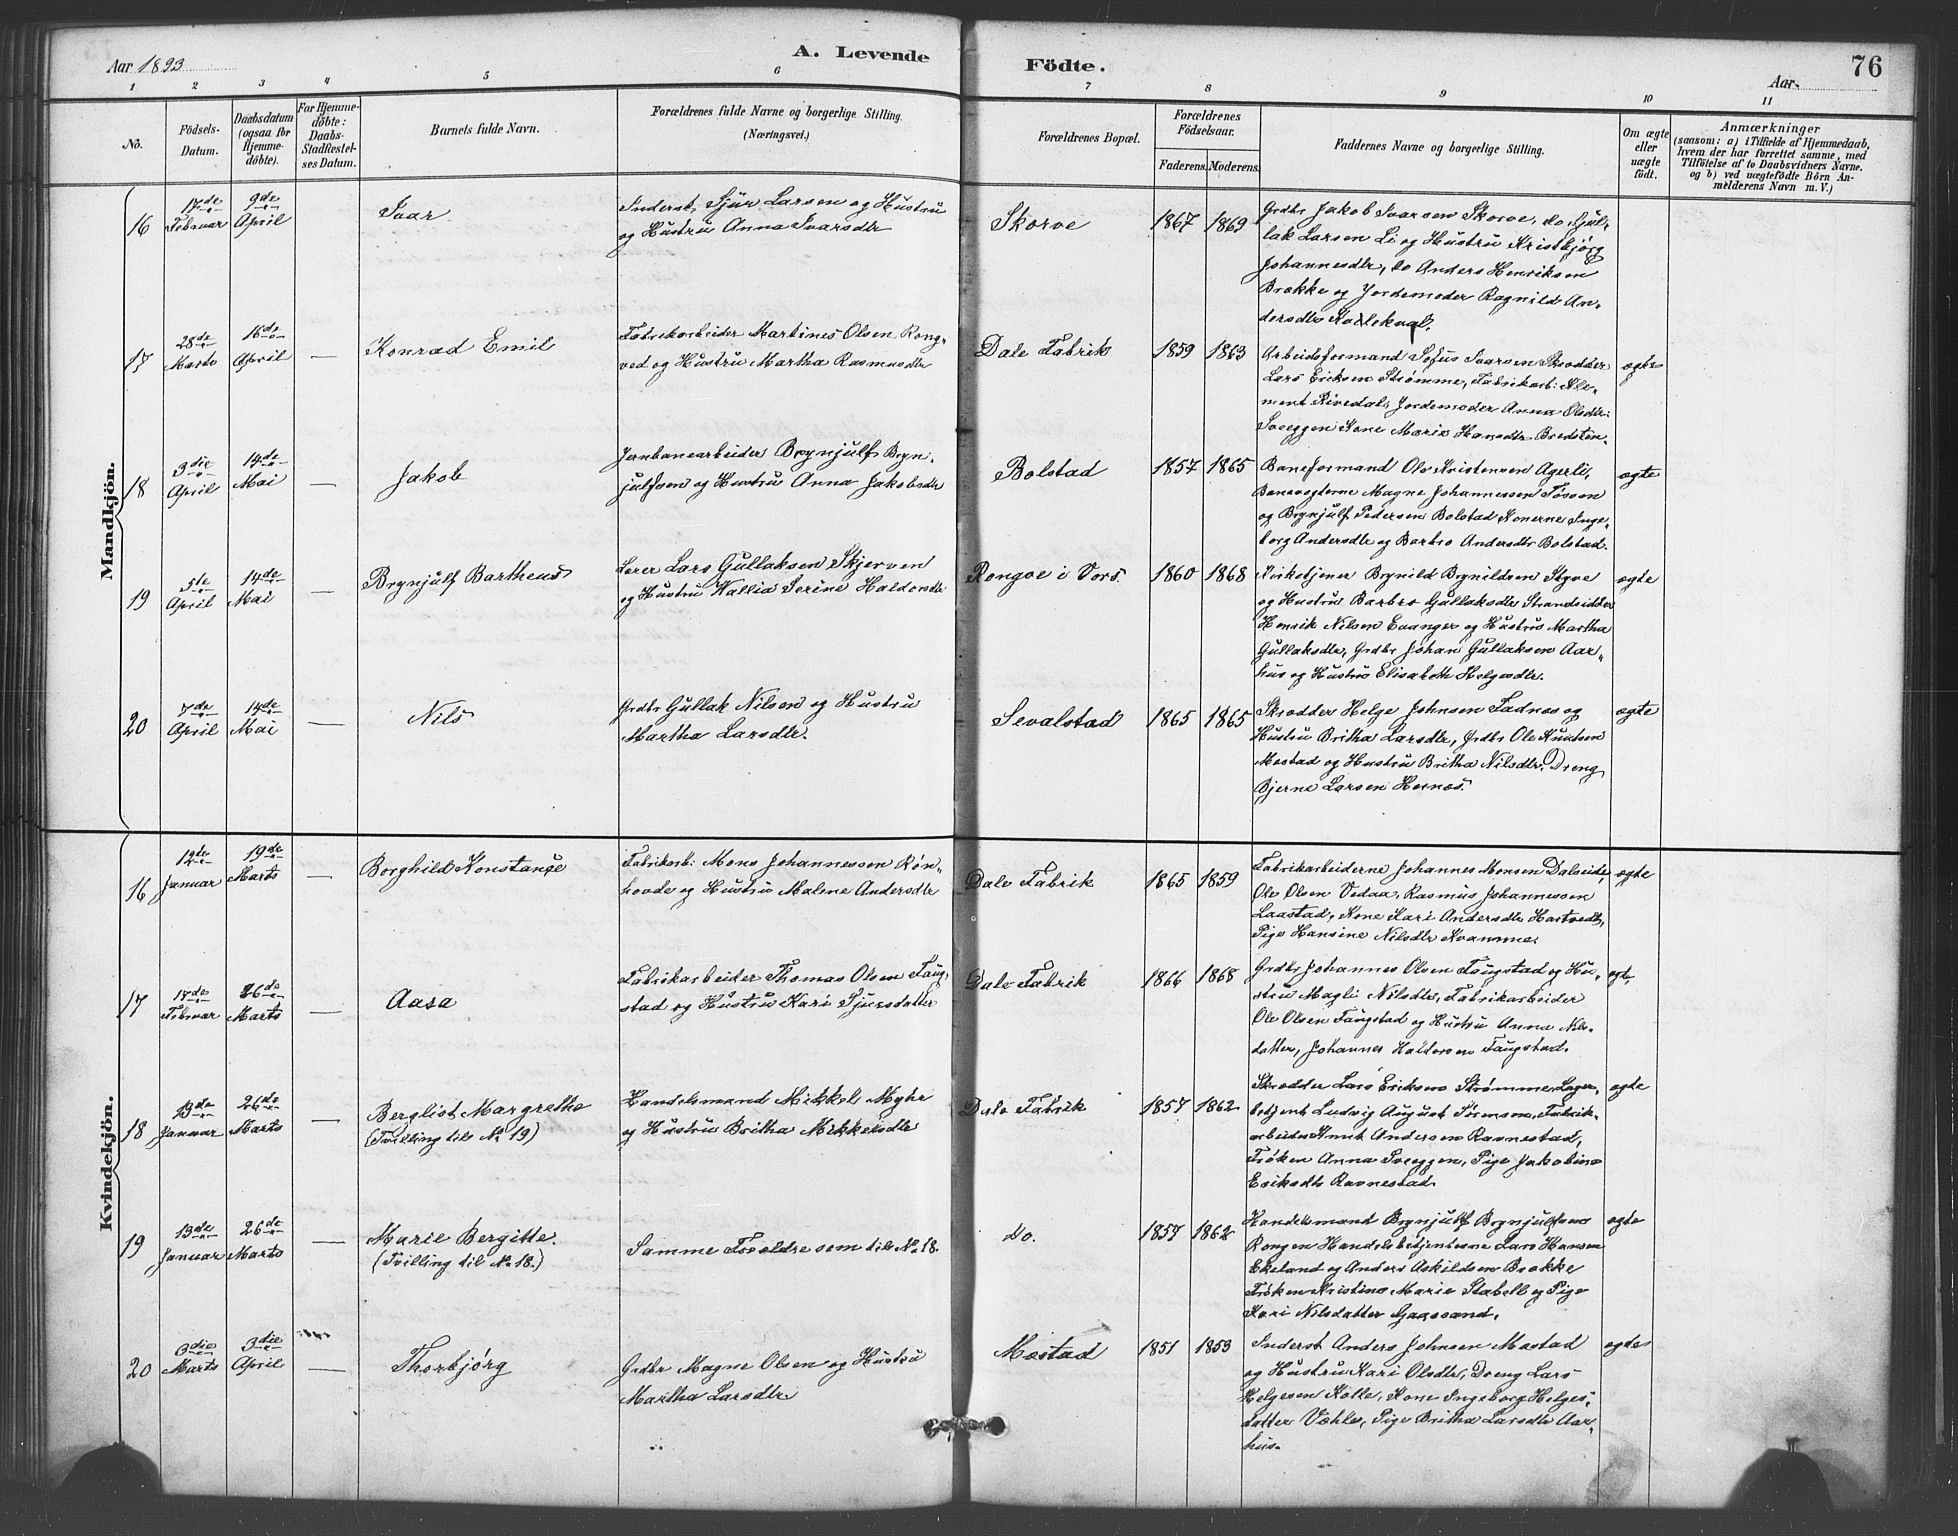 Aar 1893
A. Levende
Födte.
Aar.
76
1 2 3 4 5 6 7 8 9 10 11
No.
Födsels-
Datum.
Daabsdatum
(ogsaa for
Hjemme-
döbte).
For Hjemme-
döbte:
Daabs-
Stadfæstel-
ses Datum.
Barnets fulde Navn.
Forældrenes fulde Navne og borgerlige Stilling.
(Næringsvei.)
Forældrenes Bopæl.
Forældrenes
Födselsaar.
Faderens. Moderens.
Faddernes Navne og borgerlige Stilling.
Om ægte
eller
uægte
födt.
Anmærkninger
(saasom: a) i Tilfælde af Hjemmedaab,
hvem der har forrettet samme, med
Tilföielse af to Daabsvidners Navne,
og b) ved uægtefödte Börn An-
melderens Navn m. V.)
Mandkjön.
16
17de
Februar
9de
April
Ivar
Inderst, Sjur Larsen og Hustru
og Hustru Anna Ivarsdtr
Skorve
1867 1869
Grdbr Jakob Ivarsen Skorve, do Gul-
lak Larsen Li og Hustru Kristbjørg
Johannesdtr, do Anders Henriksen
Brække og Jordemoder Ragnild An-
dersdtr
17
28de
Marts
16de
April
—
Konrad Emil
Fabrikarbeider Martines Olsen Rong-
ved og Hustru Martha Rasmusdtr
Dale Fabrik
1859 1863
Arbeidsformand Sofus Ivarsen Skrædder
Lars Eriksen Strømme, Fabrikarb: Kle-
ment Rivedal, Jordemoder Anna Olsdtr
Sveggen Kone Marie Hansdtr Bredsten.
ægte
18
3die
April
14de
Mai
—
Jakob
Jernbanearbeider Brynjulf Bryn-
julfsen og Hustru Anna Jakobsdtr
Bolstad
1857 1865
Baneformand Ole Kristensen Agerli,
Banevogterne Magne Johannessen Fosson
og Brynjulf Pedersen Bolstad Konerne Inge-
borg Andersdtr og Barbro Andersdtr Bolstad.
ægte
19
5te
April
14de
Mai
—
Brynjulf Bartheus
Lærer Lars Gullaksen Skjerven
og Hustru Vallia Serine Haldorsdtr
Rongve i Vors.
1860 1868
Kirketjener Brynild Brynildsen Styve
og Hustru Barbro Gullaksdtr Strandsidder
Henrik Nilsen Evanger og Hustru Martha
Gullaksdtr, Grdbr Johan Gullaksen Aar-
hus og Hustru Elisabeth Helgesdtr.
ægte
20
7de
April
14de
Mai
—
Nils
Grdbr Gullak Nilsen og Hustru
Martha Larsdtr.
Sevalstad
1865 1865
Skrædder Helge Johnsen Fadnes og
Hustru Britha Larsdtr, Grdbr Ole Knutsen
Mestad og Hustru Britha Nilsdtr, Dreng
Bjerne Larsen Hernes.
ægte
Kvindekjön.
16
12de
Januar
19de
Marts
—
Borghild Konstanse
Fabrikarb: Mons Johannessen Røn-
hovde og Hustru Malene Andersdtr
Dale Fabrik
1865 1859
Fabrikarbeiderne Johannes Monsen Dalseide,
Ole Olsen Vedaa, Rasmus Johannessen
Laastad, Kone Kari Andersdtr Hartvedt,
Pige Hansine Nilsdtr Kvamme.
ægte
17
17de
Februar
26de
Marts
—
Aasa
Fabrikarbeider Thomas Olsen Faug-
stad og Hustru Kari Sjursdatter
Dale Fabrik
1866 1868
Grdbr Johannes Olsen Faugstad og Hu-
stru Magli Nilsdtr, Fabrikarbeider
Ole Olsen Faugstad og Hustru Anna Nils-
datter, Johannes Haldorsen Faugstad.
ægt.
18
13de
Januar
26de
Marts
—
Berglist Margrethe
(Tvilling til No 19)
Handelsmand Mikkel Myhr
og Hustru Britha Mikkelsdtr
Dale Fabrik
1857 1862
Skrædder Lars Eriksens Strømme Lager-
betjent Ludvig August Sørensen, Fabrik-
arbeider Knut Andersen Ravnestad,
Frøken Anna Sveggen, Pige Jakobine
Eriksdtr Ravnestad.
ægte
19
13de
Januar
26de
Marts
—
Marie Bergitte.
(Tvilling til No 18.)
Samme Forældre som til No 18.
Do.
1857 1862
Handelsmand Brynjulf Brynjulfsen
Rongen Handelsbetjenterne Lars Hansen
Ekeland og Anders Askildsen Brække
Frøken Kristine Marie Stabell og Pige
Kari Nilsdatter Gaassand.
ægte
20
3die
Marts
3die
April
—
Thorbjørg
Grdbr Magne Olsen og Hustru
Martha Larsdtr
Mestad
1851 1853
Inderst Anders Johnsen Mestad
og Hustru Kari Olsdtr, Dreng Lars
Helgesen Kolle, Kone Ingeborg Helges-
datter Væhle, Pige Britha Larsdtr Aar-
hus.
ægte